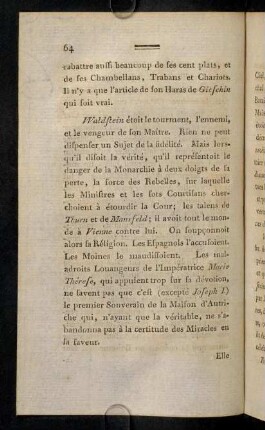 64
rabattre aussi beaucoup de ses cent plats, et
de ses Chambellans, Trabans et Chariots.
Il n'y a que l'article de son Haras de Gitschin
qui soit vrai.
Waldstein étoit le tourment, l'ennemi,
et le vengeur de son Maître. Rien ne peut
dispenser un Sujet de la fidélité. Mais lors-
qu'il disoit la vérité, qu'il représentoit le
danger de la Monarchie à deux doigts de sa
perte, la force des Rebelles, sur laquelle
les Ministres et les fats Courtisans cher-
choient à étourdir la Cour; les talens de
Thurn et de Mansfeld; il avoit tout le mon-
de à Vienne contre lui. On soupçonnoit
alors sa Réligion. Les Espagnols l'accusoient.
Les Moines le maudissoient. Les mal-
adroits Louangeurs de l'Impératrice Marie
Thérese, qui appuient trop sur sa dévotion,
ne savent pas que c'est (excepté Joseph I)
le premier Souverain de la Maison d'Autri-
che qui, n'ayant que la véritable, ne s'a-
bandonna pas à la certitude des Miracles en
sa faveur.
Elle